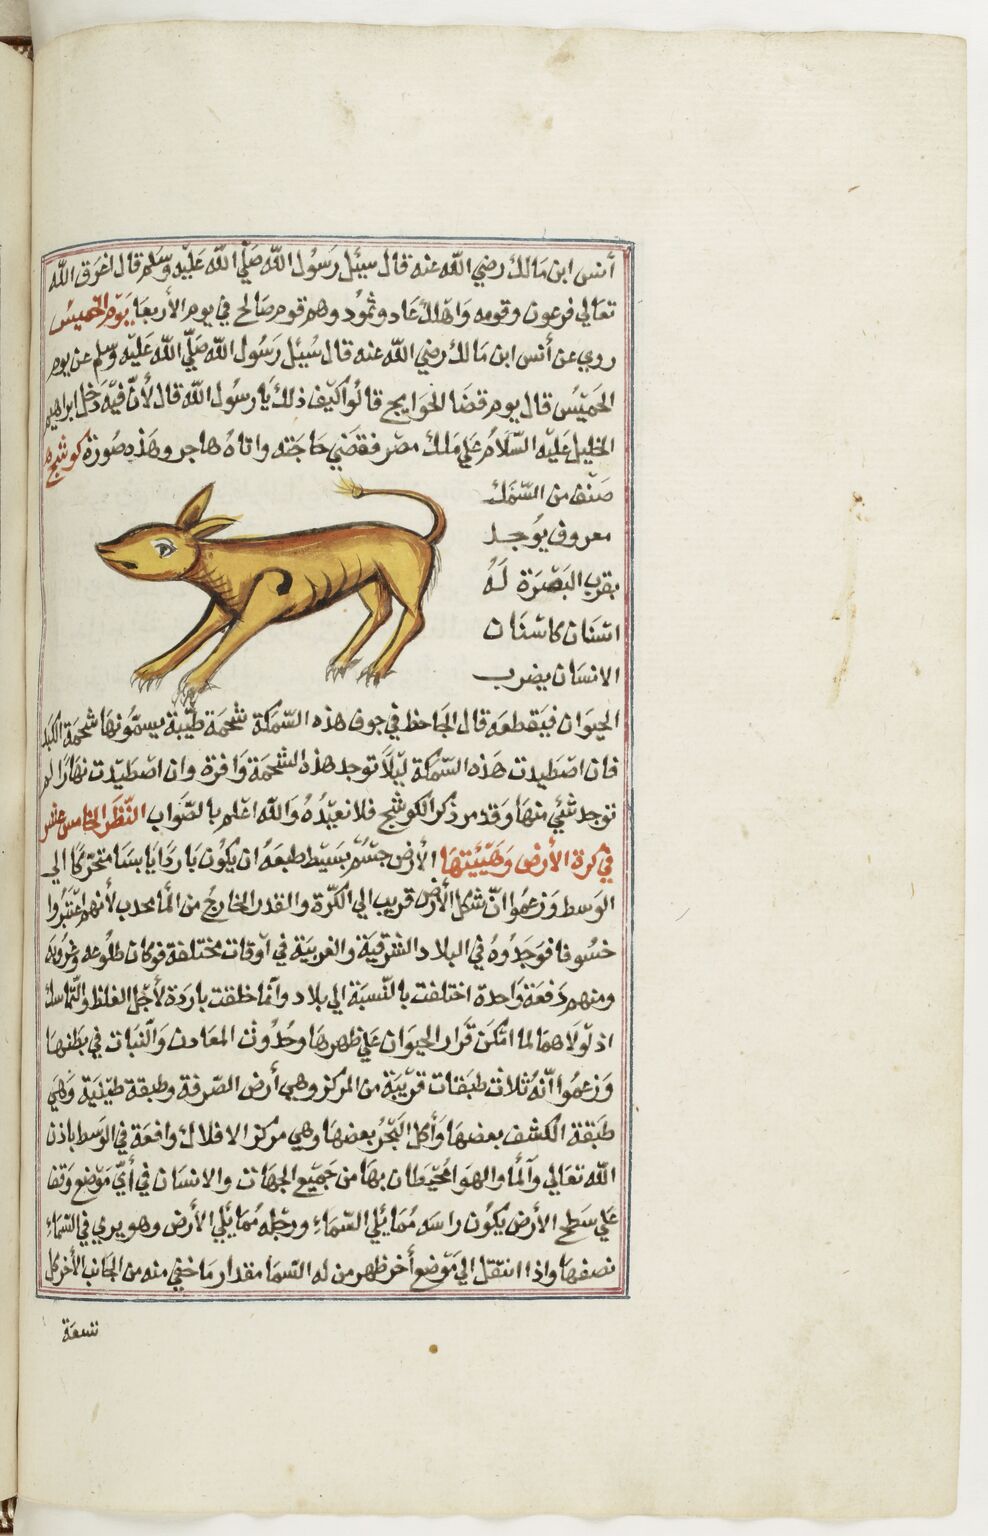 أنس ابن مالك رضي الله عنه قال سيئل رسول الله صلي الله عليه وسلم قال اغرق الله
تعالي فرعون وقومه واهلك عاد وثمود وهم قوم صالح في يوم الأربعا يوم الخميس
روي عن أنس ابن مالك رضي الله عنه قال سيئل رسول الله صلي الله عليه وسلم عن يوم
الخميس قال يوم قضا الحوايج قالوا كيف ذلك يا رسول الله قال لأن فيه دخل ابراهيم
الخليل عليه السلام علي ملك مصر فقضي حاجته واتاه هاجر وهذه صورة كوشج هو
صنف من السمك
معروف يوجد
بقرب البصرة له
اسنان كاسنان
الانسان يضرب
الحيوان فيقطعه قال الجاحظ في جوف هذه السمكة شحمة طيبة يسمونها شحمة الكبد
فان اصطيدت هذه السمكة ليلا توجد هذه الشحمة وافرة وان اصطيدت نهارا لم
توجد شئي منها وقد مر ذكر الكوشج فلا نعيده والله اعلم بالصواب النظر الخامس عشر
في كرة الأرض وهيئتها الأرض جسم بسيط طبعه ان يكون باردا يابسا متحركا الي
الوسط وزعموا ان شكل الأرض قريب الي الكرة والقدر الخارج من الما محدب لأنهم اعتبروا
خسوفا فوجدوه في البلاد الشرقية والغربية في أوقات مختلفة فوكان طلوعه وغروبه
ومنهم دفعة واحدة اختلفت بالنسبة الي بلاد وآنما خلقت باردة لأجل الغلظ والتماسك
اذ لولاهما لما امكن قرار الحيوان علي ظهرها وحدوث المعادن والنبات في بطنها
وزعموا انه ثلاث طبقات قريبة من المركز وهي أرض الصرفة وطبقة طينية وهي
طبقة الكشف بعضها وأكل البحر بعضها وهي مركز الافلاك واقعة في الوسط باذن
الله تعالي وآلما والهوا محيطان بها من جميع الجهات والانسان في أي موضع وقفا
علي سطح الأرض يكون راسه مما يلي السماء ورجله مما يلي الأرض وهو يري في السماء
نصفها واذا انتقل الي موضع أخر ظهر من له السما مقدار ما خفي منه من الجانب الأخر كل
تسعة